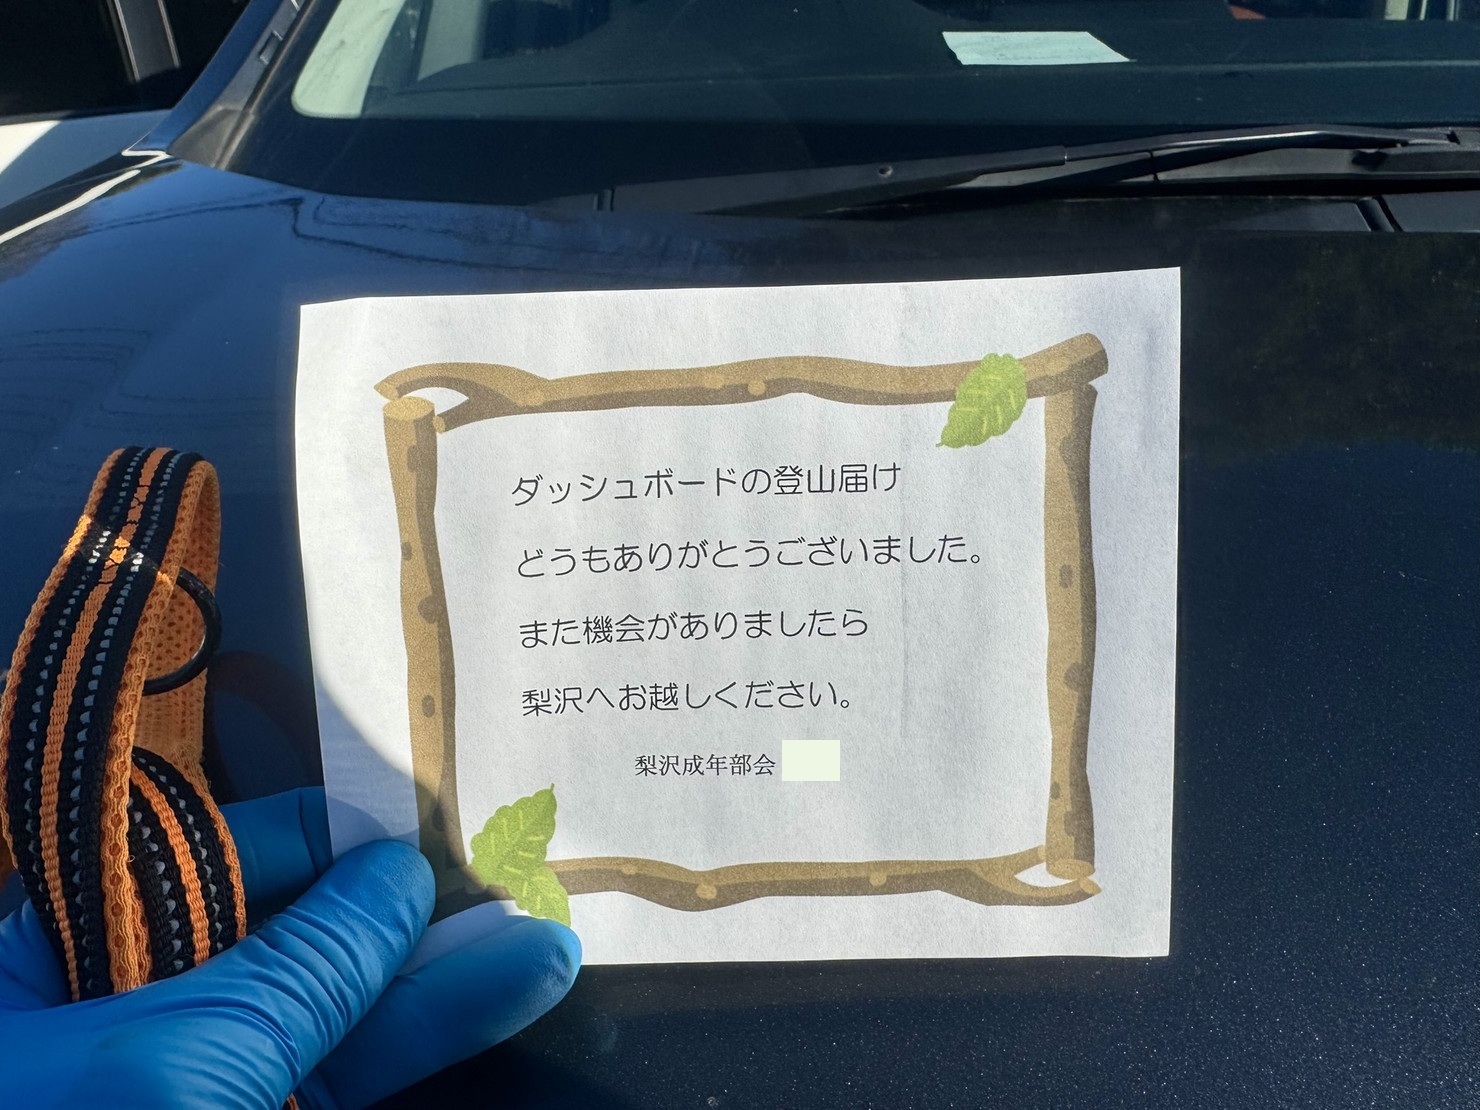 ダッシュボードの登山届け
どうもありがとうございました。
また機会がありましたら
梨沢へお越しください。
梨沢成年部会